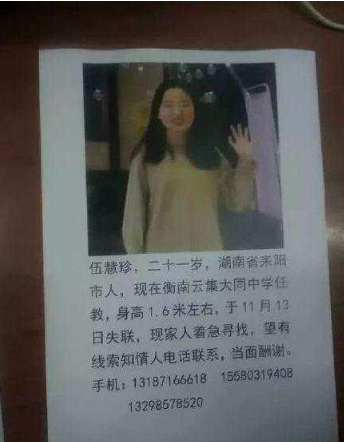 伍慧珍，二十一岁，湖南省耒阳
市人，现在衡南云集大同中学任
教，身高1.6米左右，于11月13
日失联，现家人着急寻找，望有
线索知情人电话联系，当面酬谢。
手机：13187166618 15580319408
13298578520